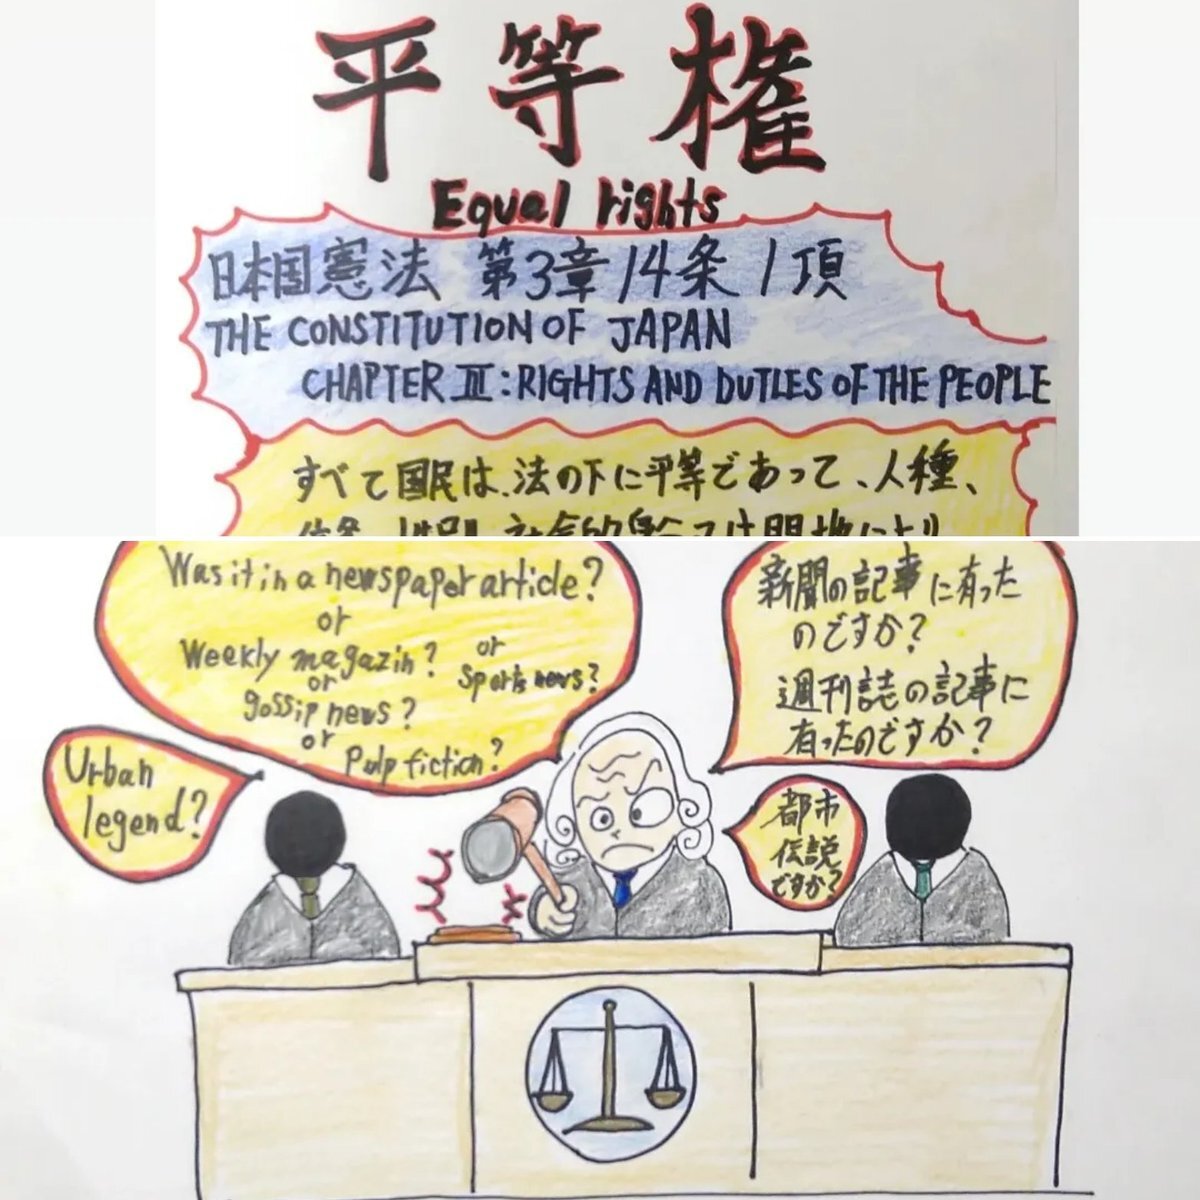 平等権
Equal rights
日本国憲法 第3章14条1項
THE CONSTITUTION OF JAPAN
CHAPTER III: RIGHTS AND DUTLES OF THE PEOPLE
すべて国民は、法の下に平等であって、人種、
Was it in a newspaper article?
or
Weekly magazin? or
or
Sports news?
gossip news?
or
Pulp fiction?
Urban
legend?
新聞の記事に有った
のですか?
週刊誌の記事に
有ったのですか?
都市
伝説
ですか?